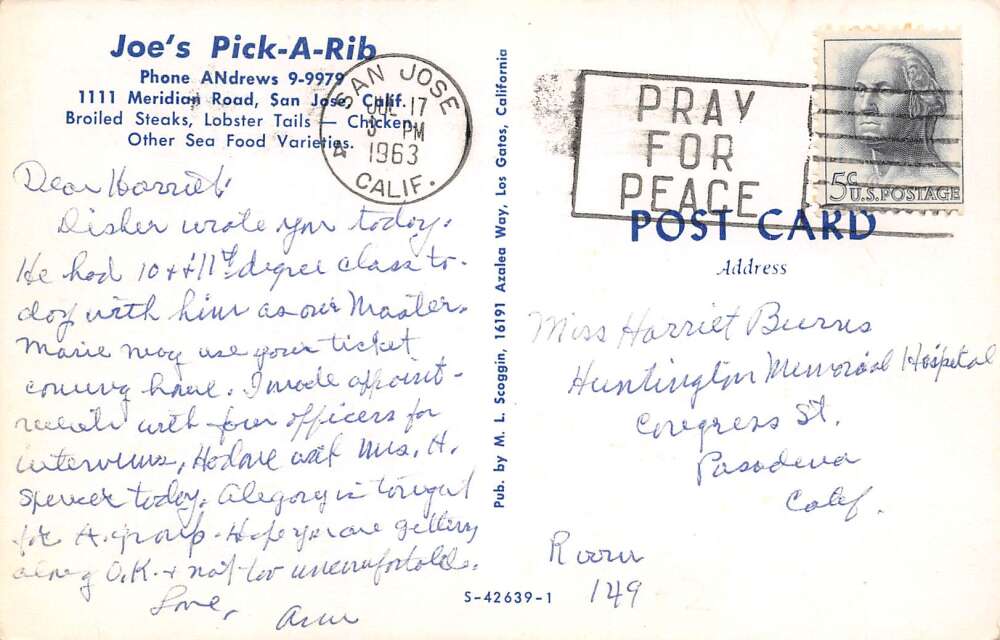 Joe's Pick-A-Rib
Phone ANdrews 9-9979
1111 Meridian Road, San Jose, Calif.
Broiled Steaks, Lobster Tails — Chicken
Other Sea Food Varieties.
SAN JOSE
JUL 17
PM
1963
CALIF.
PRAY
FOR
PEACE
5¢ U.S. POSTAGE
Dear Harriet:
Disher wrote you today.
He had 10th & 11th degree class to-
day with him as our Master.
Marie may use your ticket
coming home. I made appoint-
ments with four officers for
interviews, with Mrs. H.
Spencer today. Alegory is tonight
for A. group. Hope you are getting
along O.K. & not too uncomfortable.
Love,
Ann
Pub. by M. L. Scoggin, 16191 Azalea Way, Los Gatos, California
S-42639-1
POST CARD
Address
Miss Harriet Burns
Huntington Memorial Hospital
Congress St.
Pasadena
Calif.
Room
149